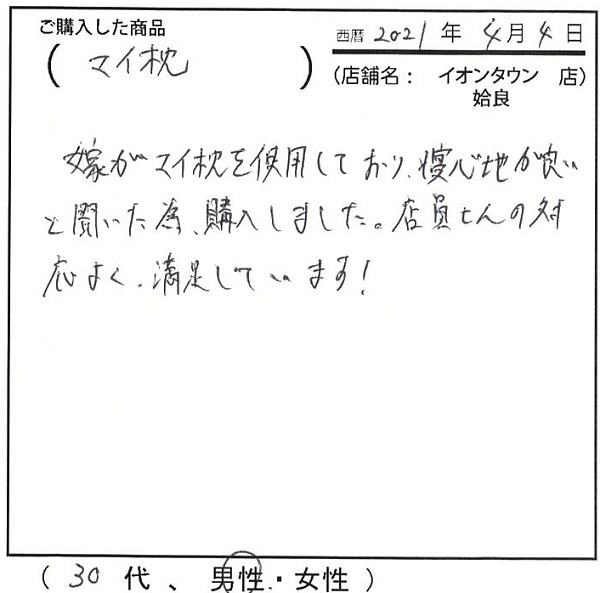 ご購入した商品
西暦 2021 年 4月 4 日
( マイ枕 )
(店舗名： イオンタウン 店)
姶良
嫁がマイ枕を使用しており、寝心地が良い
と聞いた為、購入しました。店員さんの対
応よく、満足しています！
( 30 代 、 男性・女性 )